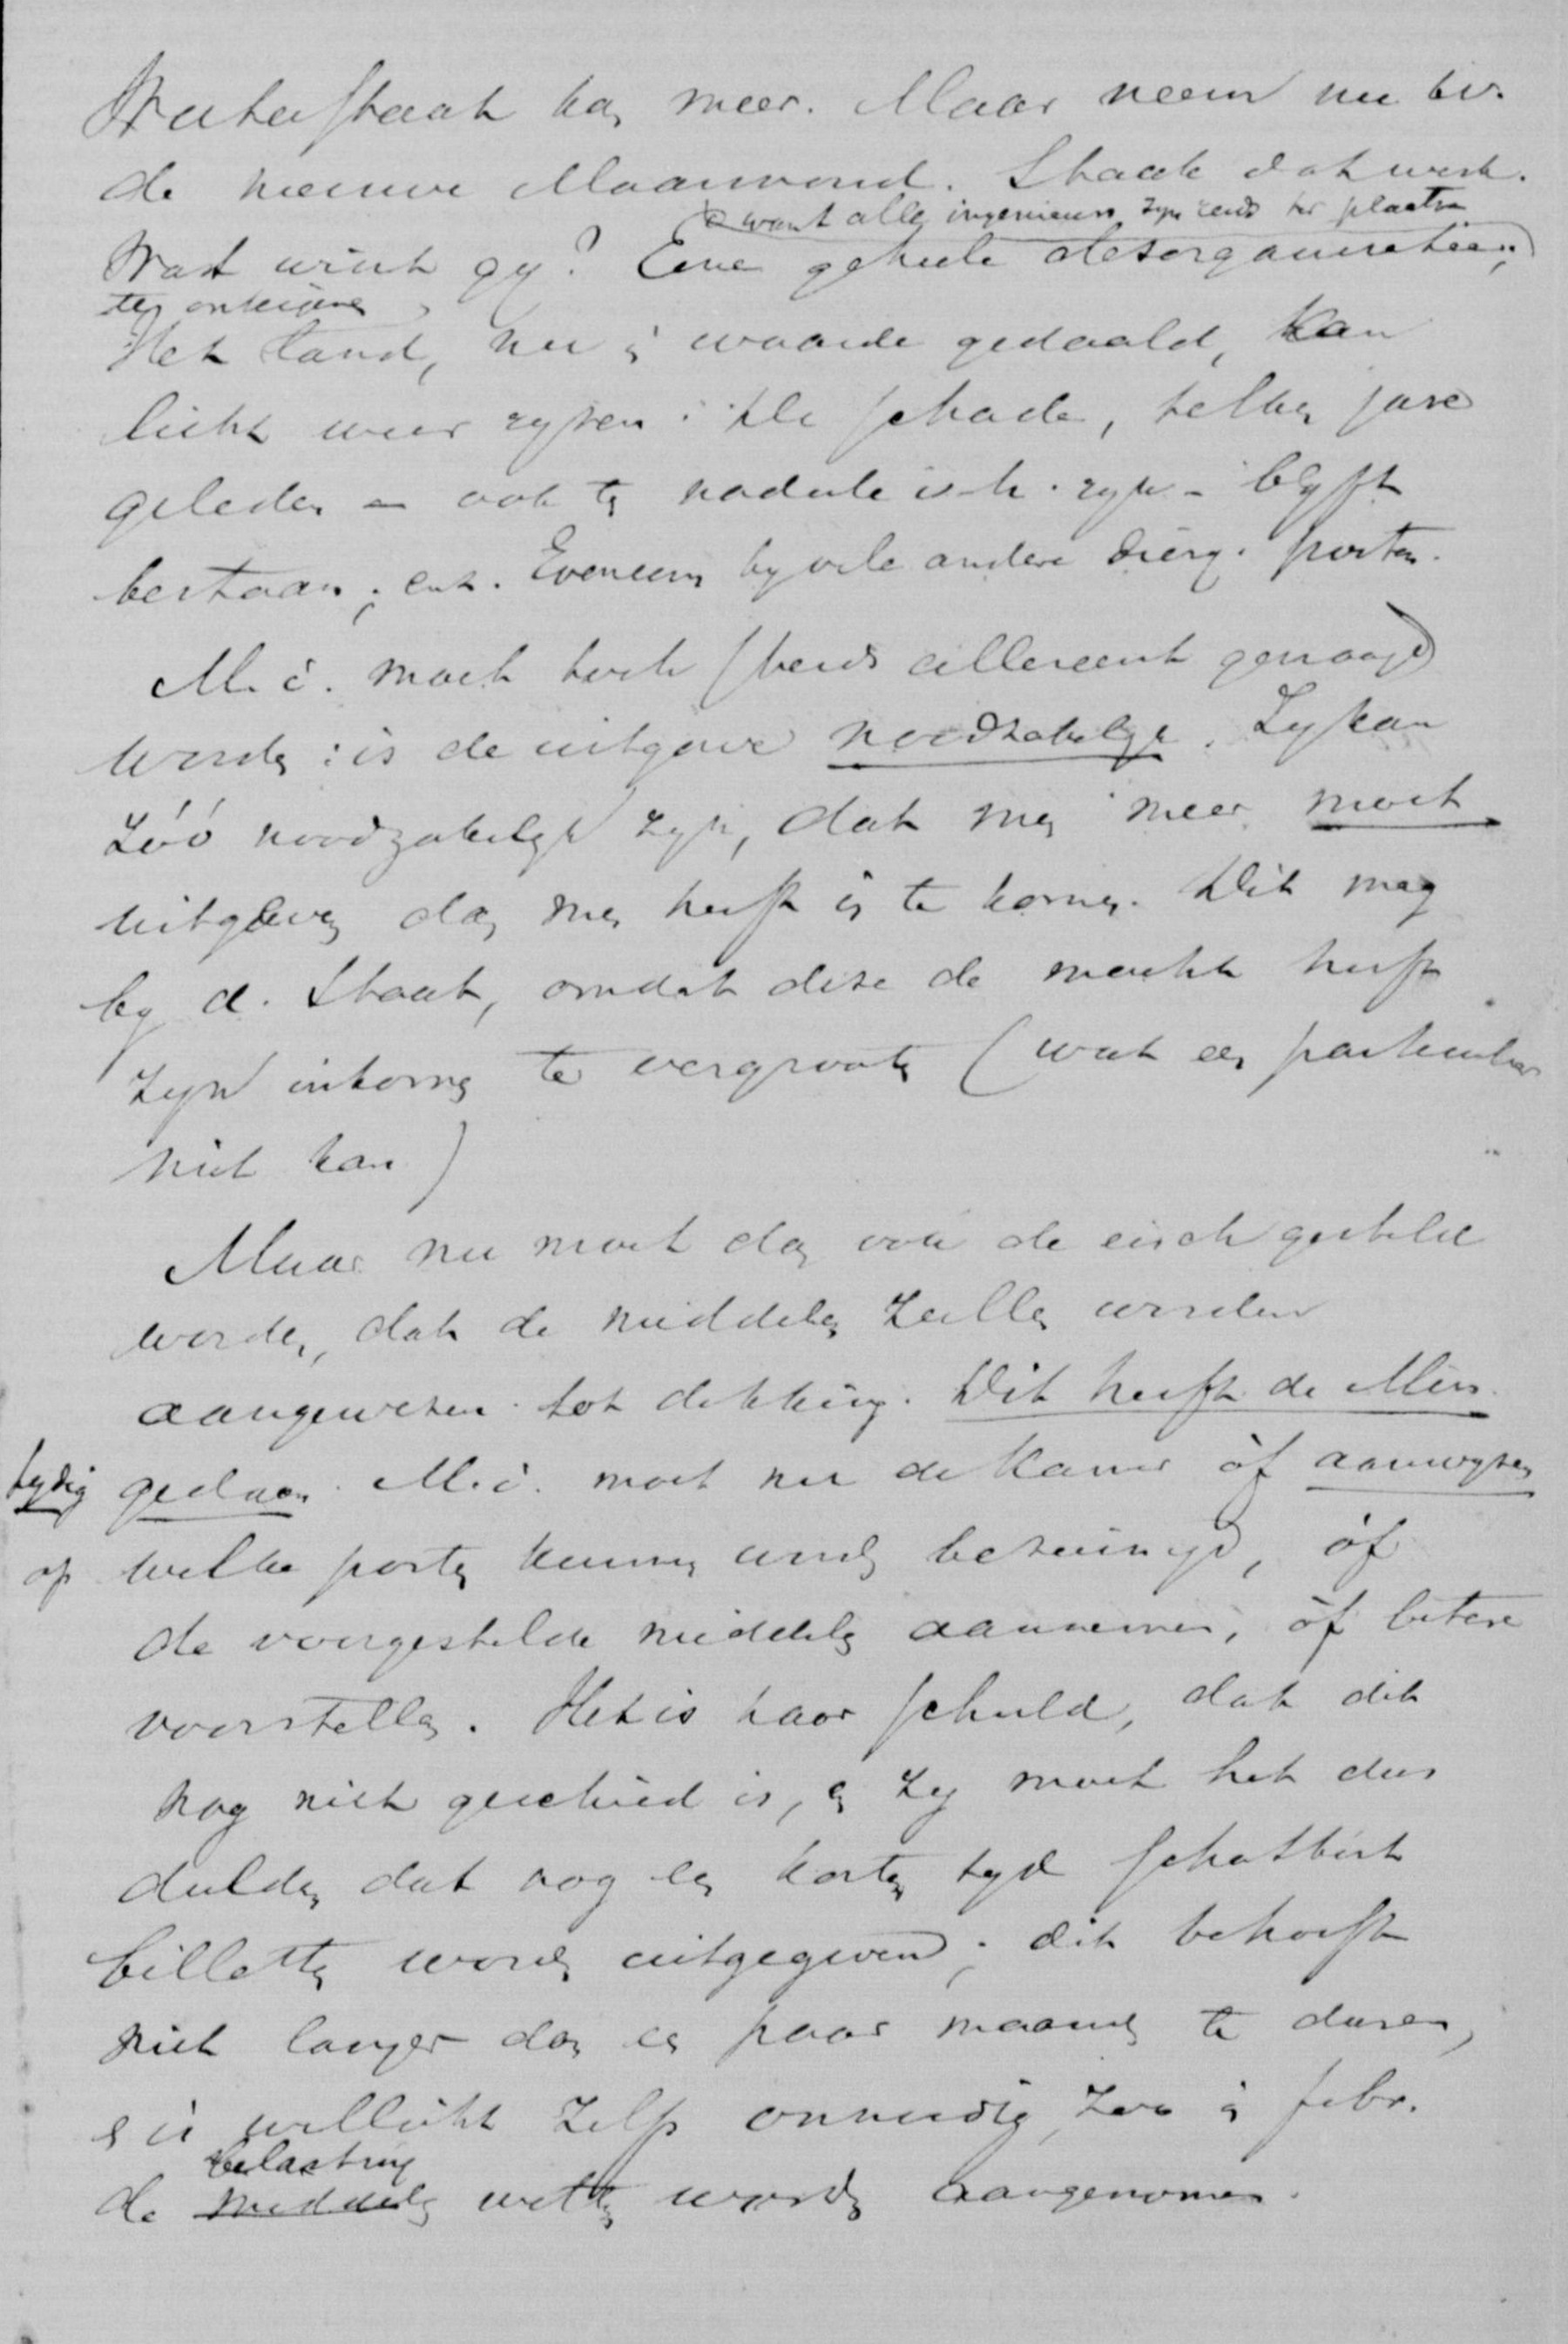 Waterstaat kan meer. Maar neem nu bv.
de nieuwe Maasmond. Staak dat werk.
want alle ingenieurs zyn reeds ter plaatse
Wat wint gy? Eene geheele desorganisatie;
te onteigenen
Het land, nu in waarde gedaald, kan
licht weer ryzen. De schade, telken jare
geleden – ook ten nadeele v. h. ryk – blyft
bestaan; enz. Eveneens by vele andere dierg. posten.
M. i. moet toch steeds allereerst gevraagd
worden: is de uitgave noodzakelyk. Zy kan
zóó noodzakelyk zyn, dat men meer moet
uitgeven dan men heeft in te komen. Dit mag
by d. Staat, omdat deze de macht heeft
zyn inkomen te vergrooten (wat een particulier
niet kan)
Maar nu moet dan ook de eisch gesteld
worden, dat de middelen zullen worden
aangewezen tot dekking. Dit heeft de Min.
tydig gedaan. M.i. moet nu de Kamer òf aanwyzen
op welke posten kunnen worden bezuinigd, òf
de voorgestelde middelen aannemen, òf betere
voorstellen. Het is haar schuld, dat dit
nog niet geschied is, en zy moet het dus
dulden dat nog een korten tyd schatkist
billetten worden uitgegeven; dit behoeft
niet langer dan een paar maanden te duren,
en is wellicht zelfs onnoodig, zoo in febr.
belasting
de middelen wetten worden aangenomen.